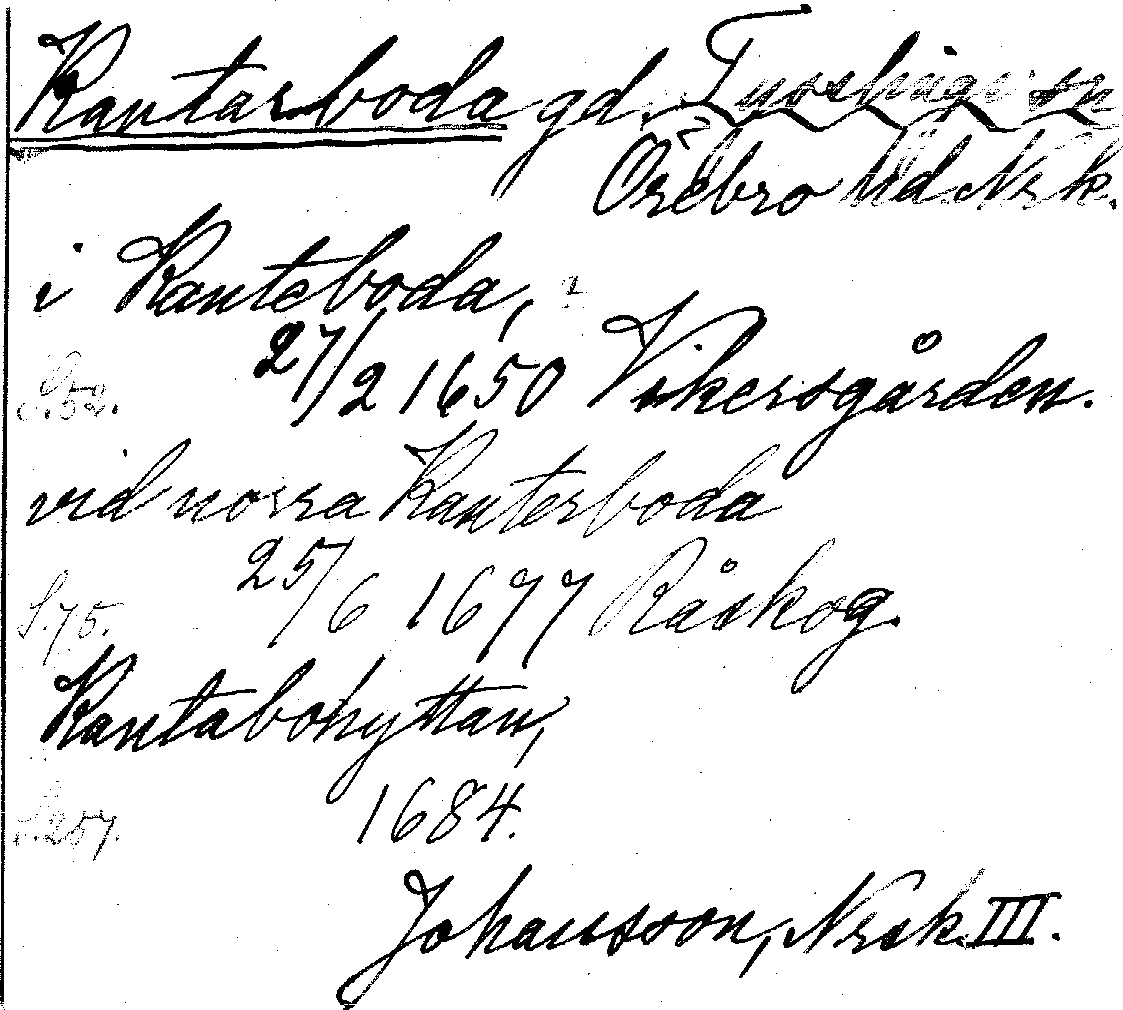 Kantarboda gd. Tysslinge sn
Örebro hd. Nrk.
i Kanteboda,
S.52. 27/2 1650 Vikersgården.
vid norra Kanterboda
S.75. 25/6 1677 Råskog.
Kantabohyttan,
S.257. 1684.
Johansson, Nrsk. III.